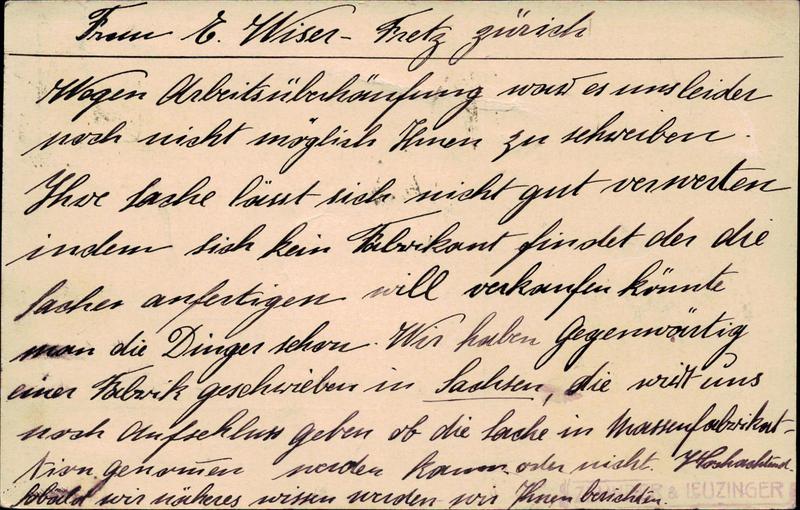 Frau E. Wiser-Fretz Zürich
Wegen Arbeitsüberhäufung war es uns leider
noch nicht möglich Ihnen zu schreiben.
Ihre Sache lässt sich nicht gut verwerten
indem sich kein Fabrikant findet der die
Sachen anfertigen will verkaufen könnte
man die Dinger schon. Wir haben Gegenwärtig
einer Fabrik geschrieben in Sachsen, die wird uns
noch Aufschluss geben ob die Sache in Massenfabrikat-
tion genom̄en werden kann oder nicht. Hochachtend
Sobald wir näheres wissen werden wir Ihnen berichten.
& LEUZINGER